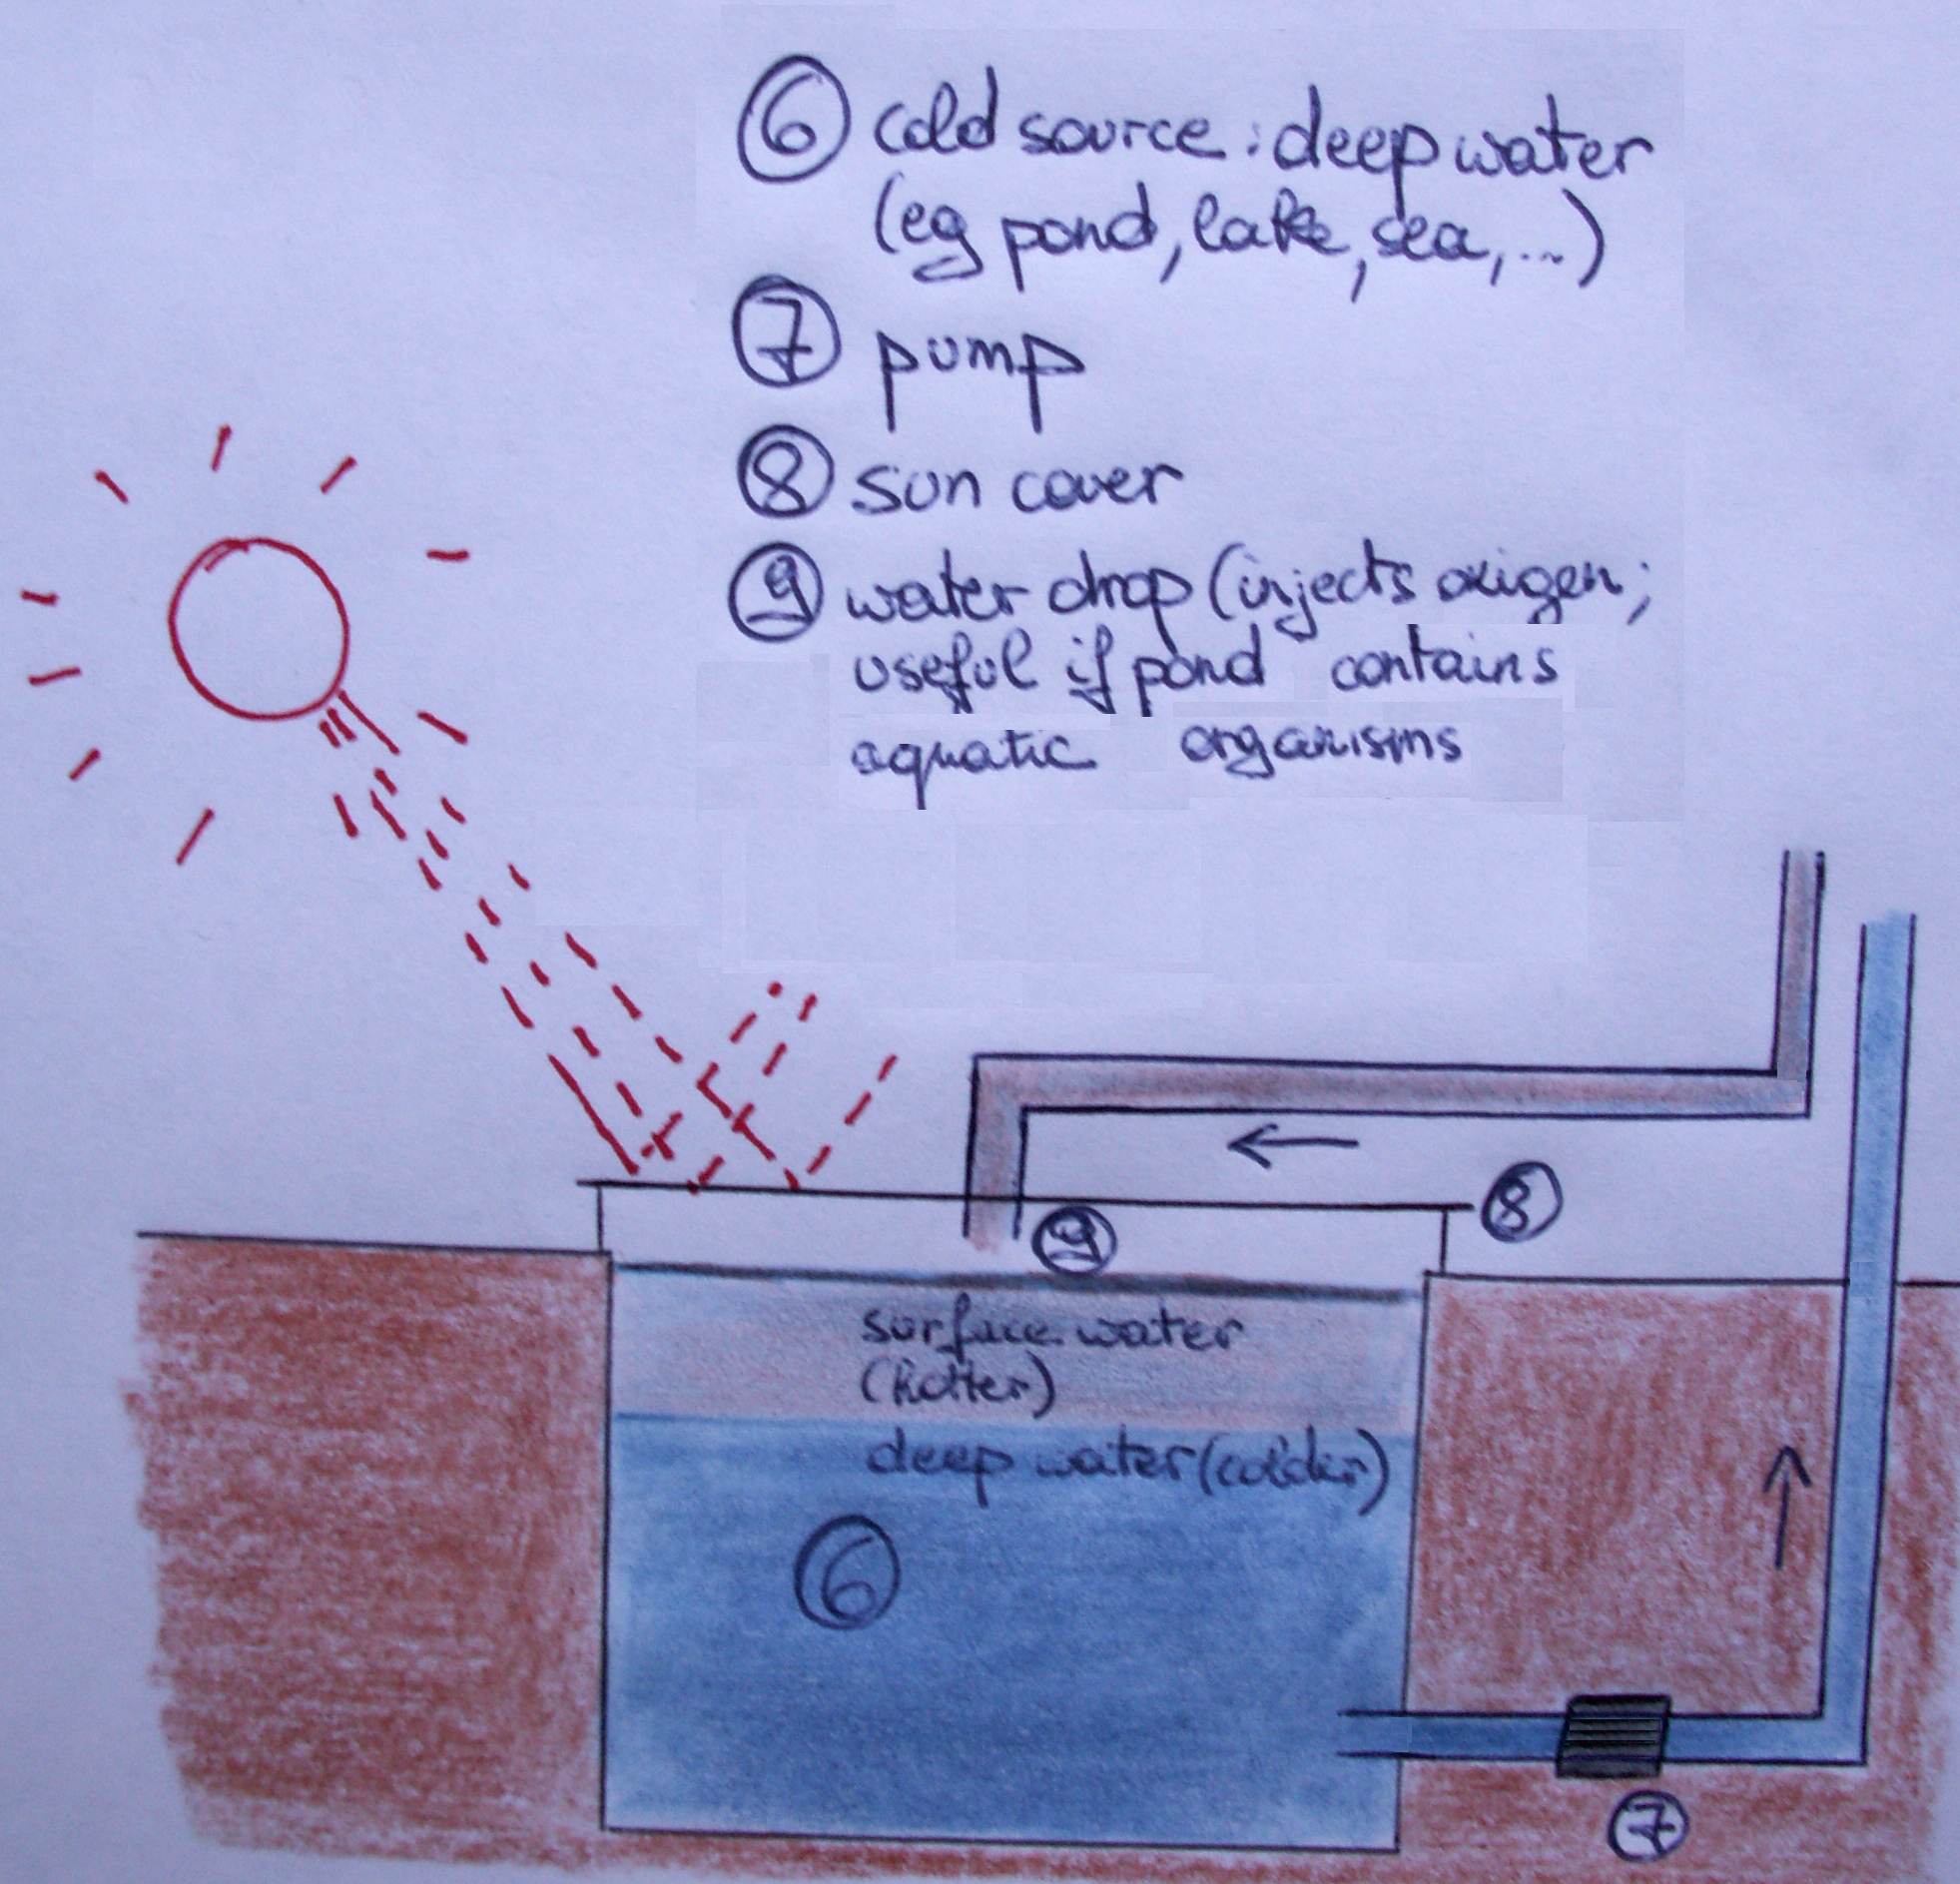 6 cold source: deep water
(eg pond, lake, sea, ...)
7 pump
8 sun cover
9 water drop (injects oxigen;
useful if pond contains
aquatic organisms
8
9
surface water
(hotter)
deep water (colder)
6
7